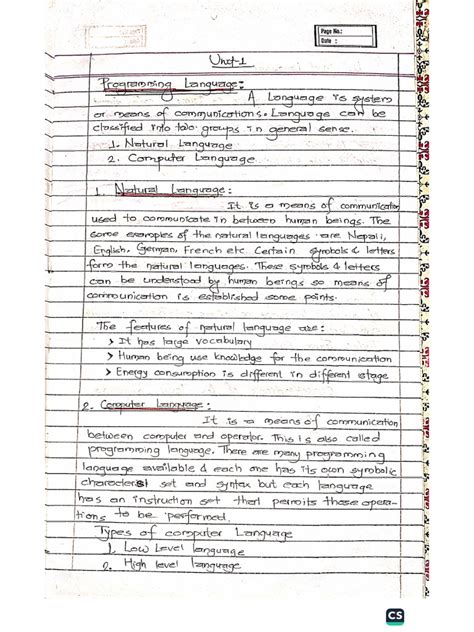 Page No.:
Date :
Unit-1
Programming Language:
A Language is system
or means of communications. Language can be
classified into two groups in general sense.
1. Natural Language
2. Computer Language
1. Natural Language:
It is a means of communication
used to communicate in between human beings. The
some examples of the natural languages are Nepali,
English, German, French etc. Certain symbols & letters
form the natural languages. These symbols & letters
can be understood by human beings so means of
communication is established some points.
The features of natural language are:
> It has large vocabulary
> Human being use knowledge for the communication
> Energy consumption is different in different stage
2. Computer Language:
It is a means of communication
between computer and operator. This is also called
programming language. There are many programming
language available & each one has its own symbolic
characters set and syntax but each language
has an instruction set that permits those opera-
tions to be performed.
Types of computer Language
1. Low Level language
2. High level language
CS